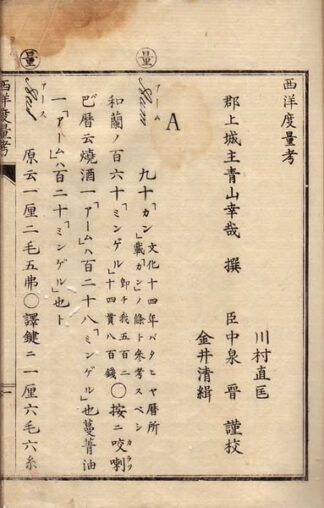 西洋度量考
郡上城主青山幸哉 撰 臣中泉 晋 謹校
川村直匡
金井清緝
A
量
アーム
Aam
九十「カン」文化十四年バタヒヤ暦所載「カン」ノ條下參考スベシ
和蘭ノ百六十「ミンゲル」卽チ我五百二十四貫八百錢〇按ニ咬𠺕
カラツ
巴暦云燒酒一「アーム」ハ百二十八「ミンゲル」也蔓菁油
一「アーム」ハ百二十「ミンゲル」也ト
量
アース
原云一厘二毛五弗〇譯鍵ニ一厘六毛六糸
西洋度量考